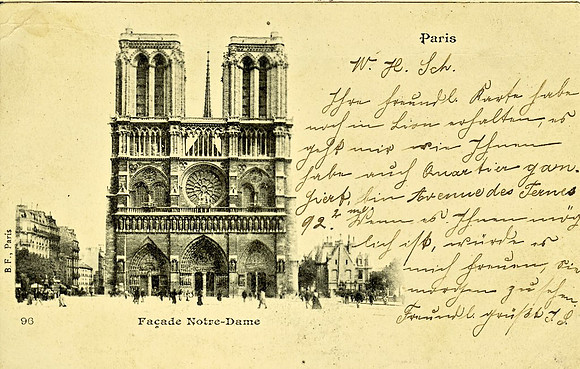 Paris
W. H. Sch.
Ihre freundl. Karte habe
noch in Lion erhalten, es
geht mir wie Ihnen
habe auch Quartier gewech-
bin Avenue des Ternes
92. Wenn es Ihnen mög-
lich ist, würde es
mich freuen, Sie
morgen zu
Freundl. grüßt
B. F., Paris
96
Façade Notre-Dame